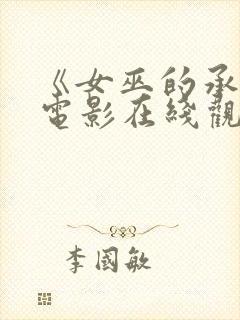 《女巫的承
電影在綫觀
李國敏